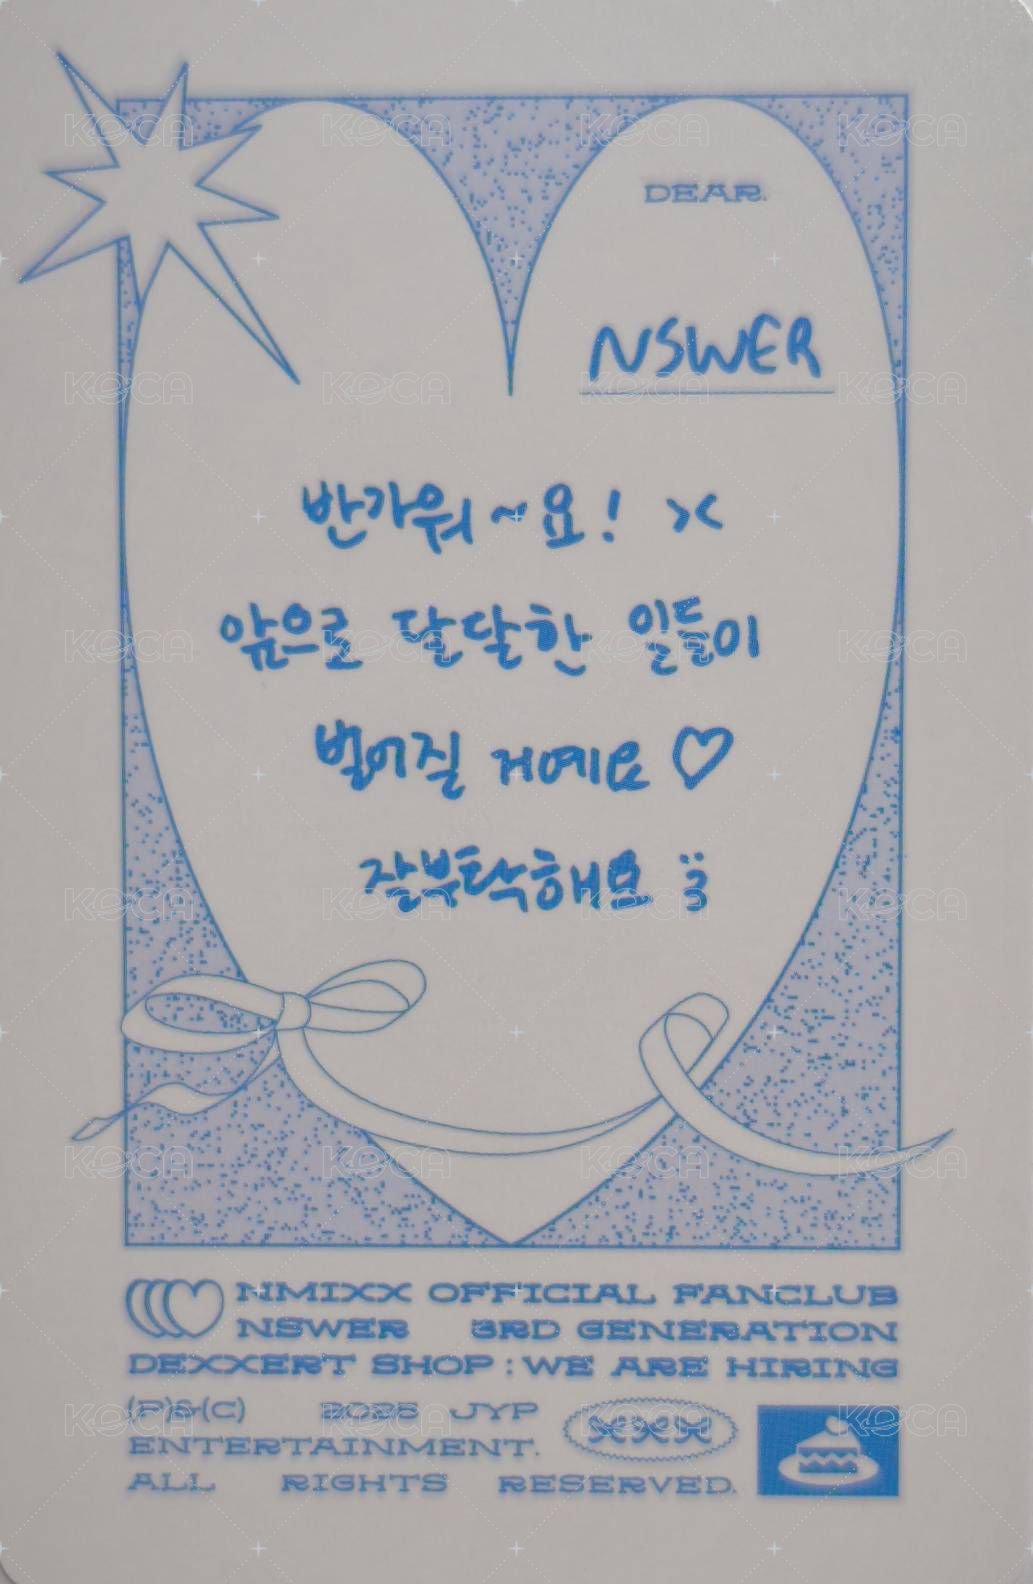 DEAR.
NSWER
반가워~요! ><
앞으로 달달한 일들이
벌어질 거예요♡
잘부탁해요 :3
NMIXX OFFICIAL FANCLUB
NSWER 3RD GENERATION
DEXXERT SHOP : WE ARE HIRING
(P)&(C) 2025 JYP
ENTERTAINMENT.
ALL RIGHTS RESERVED.
KOCA